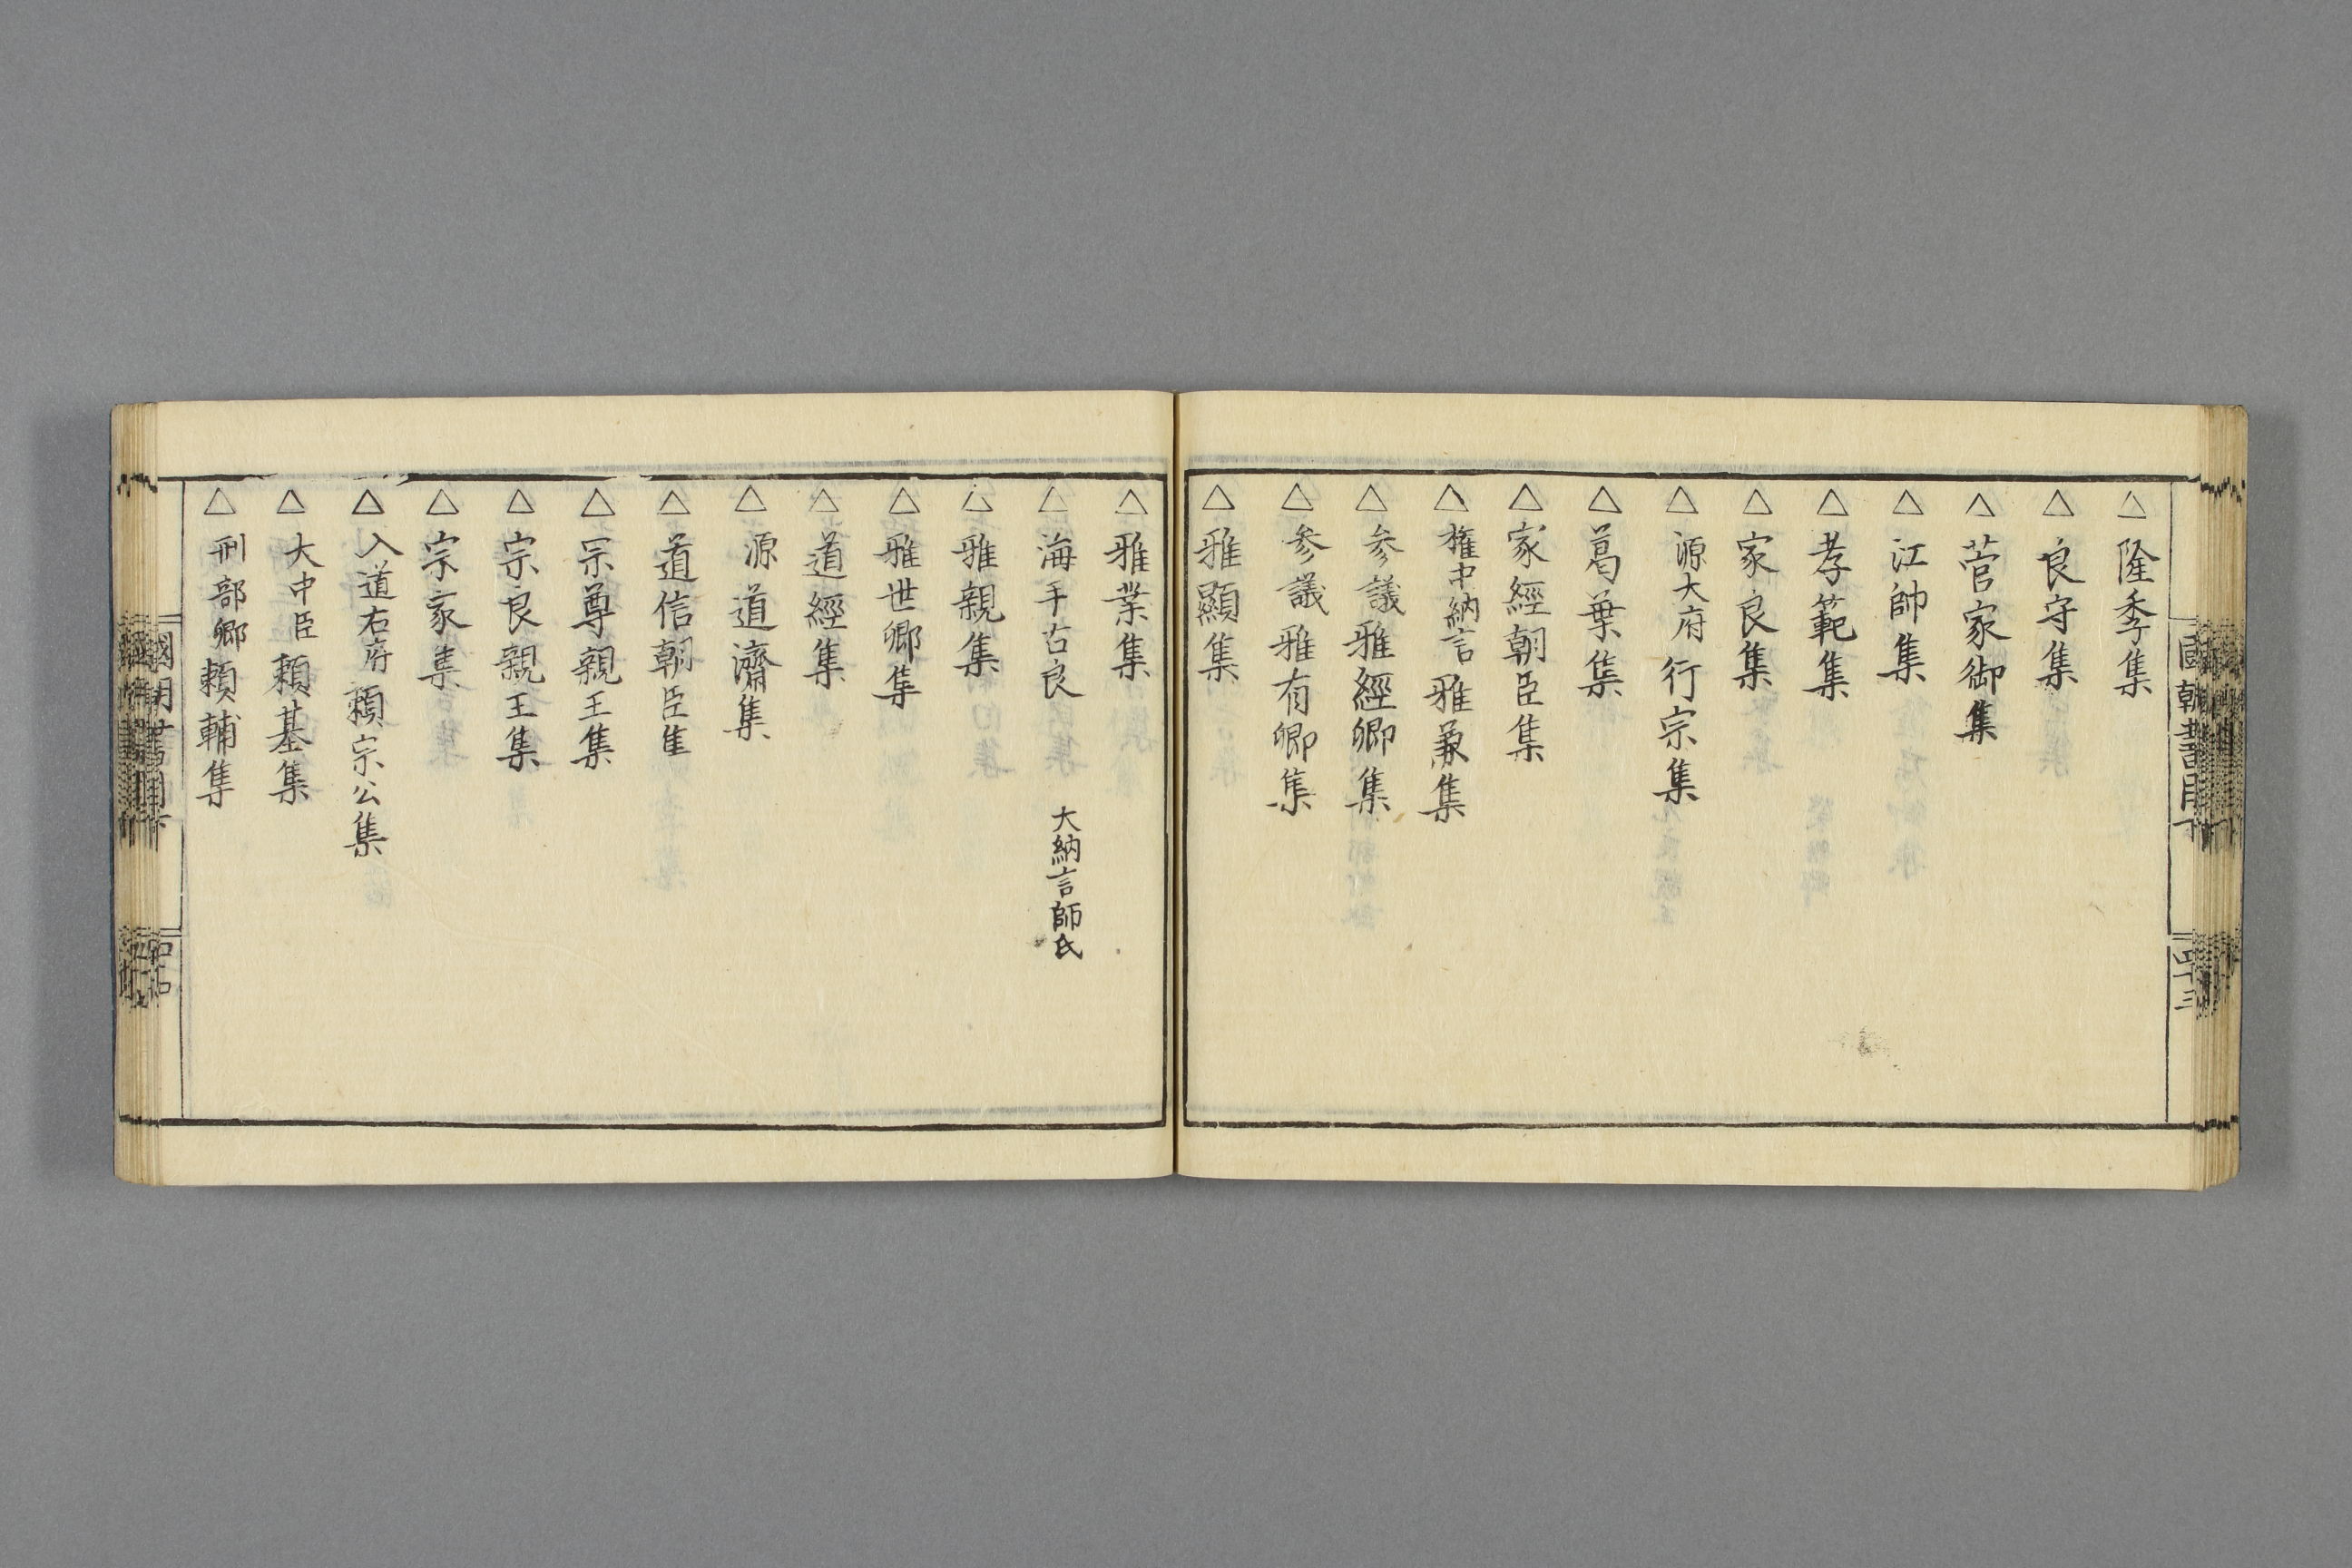 國朝書目下
四十三
△隆季集
△良守集
△菅家御集
△江帥集
△孝範集
△家良集
△源大府行宗集
△葛葉集
△家經朝臣集
△權中納言雅兼集
△参議雅經卿集
△参議雅有卿集
△雅顯集
△雅業集
△海手古良集 大納言師氏
△雅親集
△雅世卿集
△道經集
△源道濟集
△道信朝臣集
△宗尊親王集
△宗良親王集
△宗家集
△入道右府頼宗公集
△大中臣頼基集
△刑部卿頼輔集